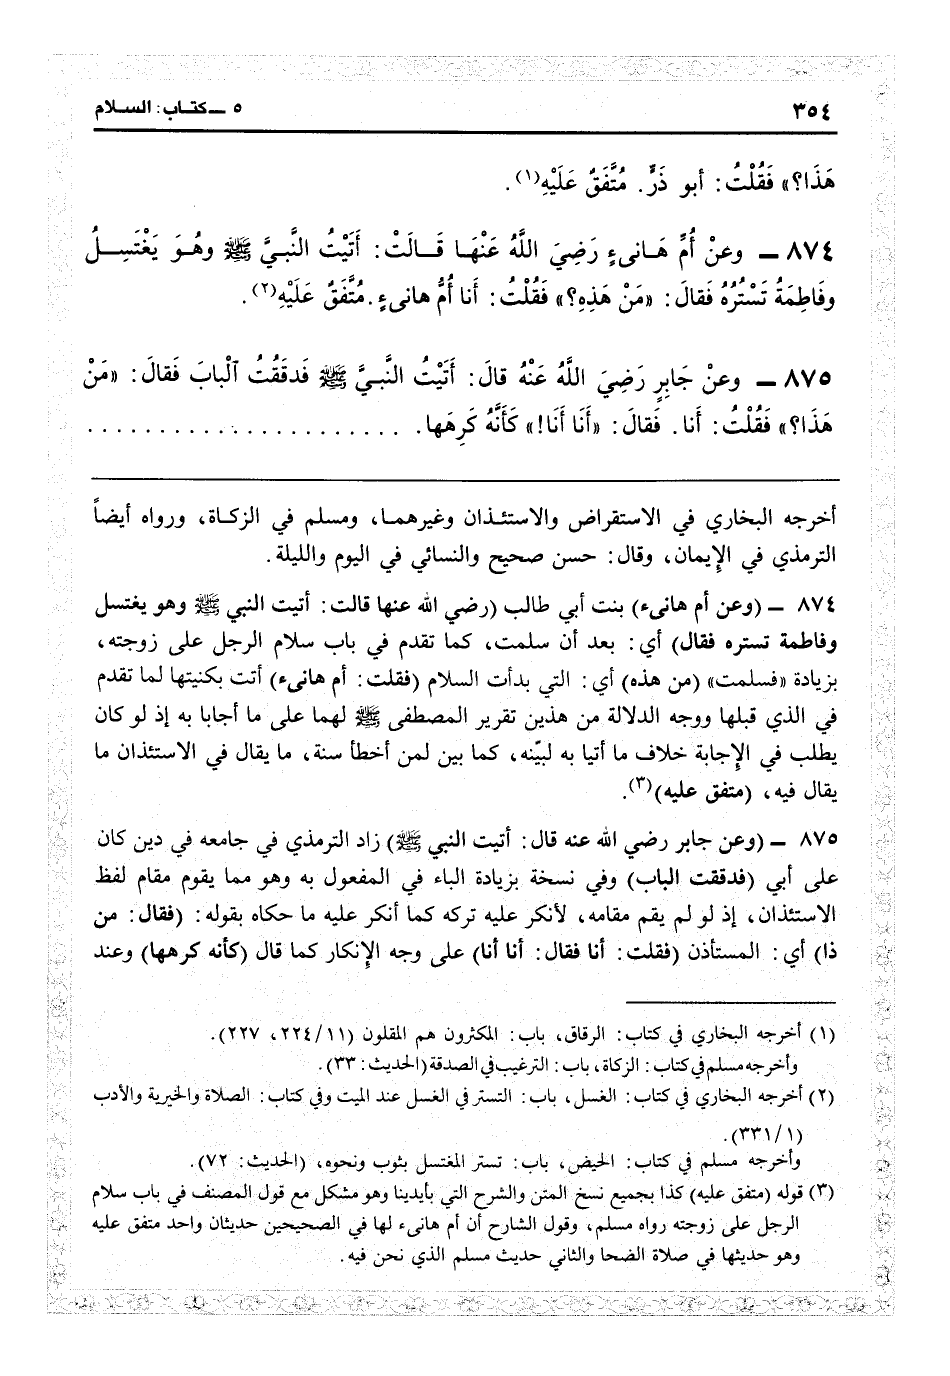 ٣٥٤
٥ ـ كتاب: السلام
هَذَا؟» فَقُلْتُ: أبو ذَرٍّ. مُتَّفَقٌ عَلَيْهِ(١).
٨٧٤ ـ وعنْ أُمِّ هَانىءٍ رَضِيَ اللَّهُ عَنْهَا قَالَتْ: أَتَيْتُ النَّبيَّ ﷺ وهُوَ يَغْتَسِلُ
وفَاطِمَةُ تَسْتُرُهُ فَقالَ: «مَنْ هَذِهِ؟» فَقُلْتُ: أَنا أُمُّ هانىءٍ. مُتَّفَقٌ عَلَيْهِ(٢).
٨٧٥ ـ وعنْ جَابِرٍ رَضِيَ اللَّهُ عَنْهُ قالَ: أَتَيْتُ النَّبيَّ ﷺ فَدقَقْتُ ٱلْبابَ فَقالَ: «مَنْ
هَذَا؟» فَقُلْتُ: أَنا. فَقالَ: «أَنَا أَنَا!» كَأَنَّهُ كَرِهَها. . . . . . . . . . . . . . . . . . . . . . . .
أخرجه البخاري في الاستقراض والاستئذان وغيرهما، ومسلم في الزكاة، ورواه أيضاً
الترمذي في الإيمان، وقال: حسن صحيح والنسائي في اليوم والليلة.
٨٧٤ ـ (وعن أم هانىء) بنت أبي طالب (رضي الله عنها قالت: أتيت النبي ﷺ وهو يغتسل
وفاطمة تستره فقال) أي: بعد أن سلمت، كما تقدم في باب سلام الرجل على زوجته،
بزيادة «فسلمت» (من هذه) أي: التي بدأت السلام (فقلت: أم هانىء) أتت بكنيتها لما تقدم
في الذي قبلها ووجه الدلالة من هذين تقرير المصطفى ﷺ لهما على ما أجابا به إذ لو كان
يطلب في الإجابة خلاف ما أتيا به لبيّنه، كما بين لمن أخطأ سنة، ما يقال في الاستئذان ما
يقال فيه، (متفق عليه)(٣).
٨٧٥ ـ (وعن جابر رضي الله عنه قال: أتيت النبي ﷺ) زاد الترمذي في جامعه في دين كان
على أبي (فدققت الباب) وفي نسخة بزيادة الباء في المفعول به وهو مما يقوم مقام لفظ
الاستئذان، إذ لو لم يقم مقامه، لأنكر عليه تركه كما أنكر عليه ما حكاه بقوله: (فقال: من
ذا) أي: المستأذن (فقلت: أنا فقال: أنا أنا) على وجه الإنكار كما قال (كأنه كرهها) وعند
(١) أخرجه البخاري في كتاب: الرقاق، باب: المكثرون هم المقلون (٢٢٤/١١، ٢٢٧).
وأخرجه مسلم في كتاب: الزكاة، باب: الترغيب في الصدقة (الحديث: ٣٣).
(٢) أخرجه البخاري في كتاب: الغسل، باب: التستر في الغسل عند الميت وفي كتاب: الصلاة والخيرية والأدب
(٣٣١/١).
وأخرجه مسلم في كتاب: الحيض، باب: تستر المغتسل بثوب ونحوه، (الحديث: ٧٢).
(٣) قوله (متفق عليه) كذا بجميع نسخ المتن والشرح التي بأيدينا وهو مشكل مع قول المصنف في باب سلام
الرجل على زوجته رواه مسلم، وقول الشارح أن أم هانىء لها في الصحيحين حديثان واحد متفق عليه
وهو حديثها في صلاة الضحا والثاني حديث مسلم الذي نحن فيه.